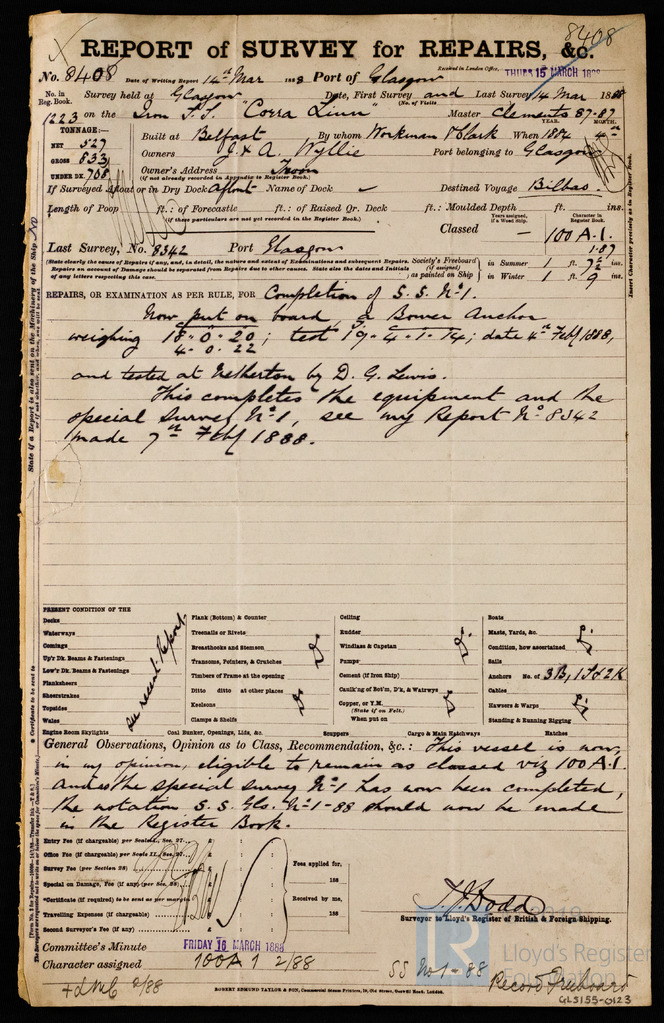 8408
REPORT of SURVEY for REPAIRS, &c.
Received in London Office, THURS 15 MARCH 1888
No. 8408 Date of Writing Report 14th Mar 1888 Port of Glasgow
No. in Reg. Book. Survey held at Glasgow Date, First Survey and Last Survey 14 Mar 1888
(No. of Visits
1223 on the Iron S.S. "Corra Linn" Master Clements 87-87
TONNAGE:— YEAR. MONTH.
NET 527 Built at Belfast By whom Workman & Clark When 1884 4th
GROSS 833 Owners J. & A. Wyllie Port belonging to Glasgow
UNDER DK. 768 Owner's Address Troon
(if not already recorded in Appendix to Register Book.)
If Surveyed Afloat or in Dry Dock Afloat Name of Dock Destined Voyage Bilbao.
Length of Poop ft.: of Forecastle ft.: of Raised Qr. Deck ft.: Moulded Depth ft. ins.
(if these particulars are not yet recorded in the Register Book.)
Years assigned, if a Wood Ship. Character in Register Book.
Classed — 100 A.1.
1.87
Last Survey, No. 8342 Port Glasgow
(State clearly the cause of Repairs if any, and, in detail, the nature and extent of Examinations and subsequent Repairs.
Repairs on account of Damage should be separated from Repairs due to other causes. State also the dates and Initials
of any letters respecting this case.
Society's Freeboard (if assigned) as painted on Ship
in Summer 1 ft. 7½ ins.
in Winter 1 ft. 9 ins.
REPAIRS, OR EXAMINATION AS PER RULE, FOR Completion of S.S. No 1.
Now put on board, a Bower Anchor
weighing 18-0-20; test 19-4-1-14; date 4th Feby 1888,
4-0-22
and tested at Netherton by D. G. Lewis.
This completes the equipment and the
special survey No 1, see my Report No 8342
made 7th Feby 1888.
PRESENT CONDITION OF THE
Decks
Waterways
Comings
Up'r Dk. Beams & Fastenings
Low'r Dk. Beams & Fastenings
Planksheers
Sheerstrakes
Topsides
Wales
Engine Room Skylights
see recent Report
Plank (Bottom) & Counter
Treenails or Rivets
Breasthooks and Stemson
Transoms, Pointers, & Crutches
Timbers of Frame at the opening
Ditto ditto at other places
Keelsons
Clamps & Shelfs
Coal Bunker, Openings, Lids, &c.
Do
Do
Ceiling
Rudder
Windlass & Capstan
Pumps
Cement (if Iron Ship)
Caulk'ng of Bot'm, D'k, & Watrwys
Copper, or Y.M.
(State if on Felt.)
When put on
Scuppers
Cargo & Main Hatchways
Do
Do
Boats
Masts, Yards, &c.
Condition, how ascertained
Sails
Anchors No. of 3B, 1S & 2K
Cables
Hawsers & Warps
Standing & Running Rigging
Hatches
Do
Do
General Observations, Opinion as to Class, Recommendation, &c.: This vessel is now,
in my opinion, eligible to remain as classed viz 100 A.1.
and as the special survey No 1 has now been completed,
the notation S.S. Gls. No 1-88 should now be made
in the Register Book.
Entry Fee (if chargeable) per Scale I., Sec. 27 £ : :
Office Fee (if chargeable) per Scale II., Sec. 27 £ : :
Survey Fee (per Section 28) £ : :
Special on Damage, Fee (if any) (per Sec. 28) £ : :
*Certificate (if required) to be sent as per margin £ : :
Travelling Expenses (if chargeable) £ : :
Second Surveyor's Fee (if any) £ : :
Fees applied for,
188
Received by me,
188
T. J. Dodd
Surveyor to Lloyd's Register of British & Foreign Shipping.
Committee's Minute FRIDAY 16 MARCH 1888
Character assigned 100A1 2/88
SS No 1-88
Record Freeboard
+LMC 2/88
ROBERT EDMUND TAYLOR & SON, Commercial Steam Printers, 19, Old Street, Goswell Road, London.
GLS155-0123
LR
Lloyd's Register
Foundation